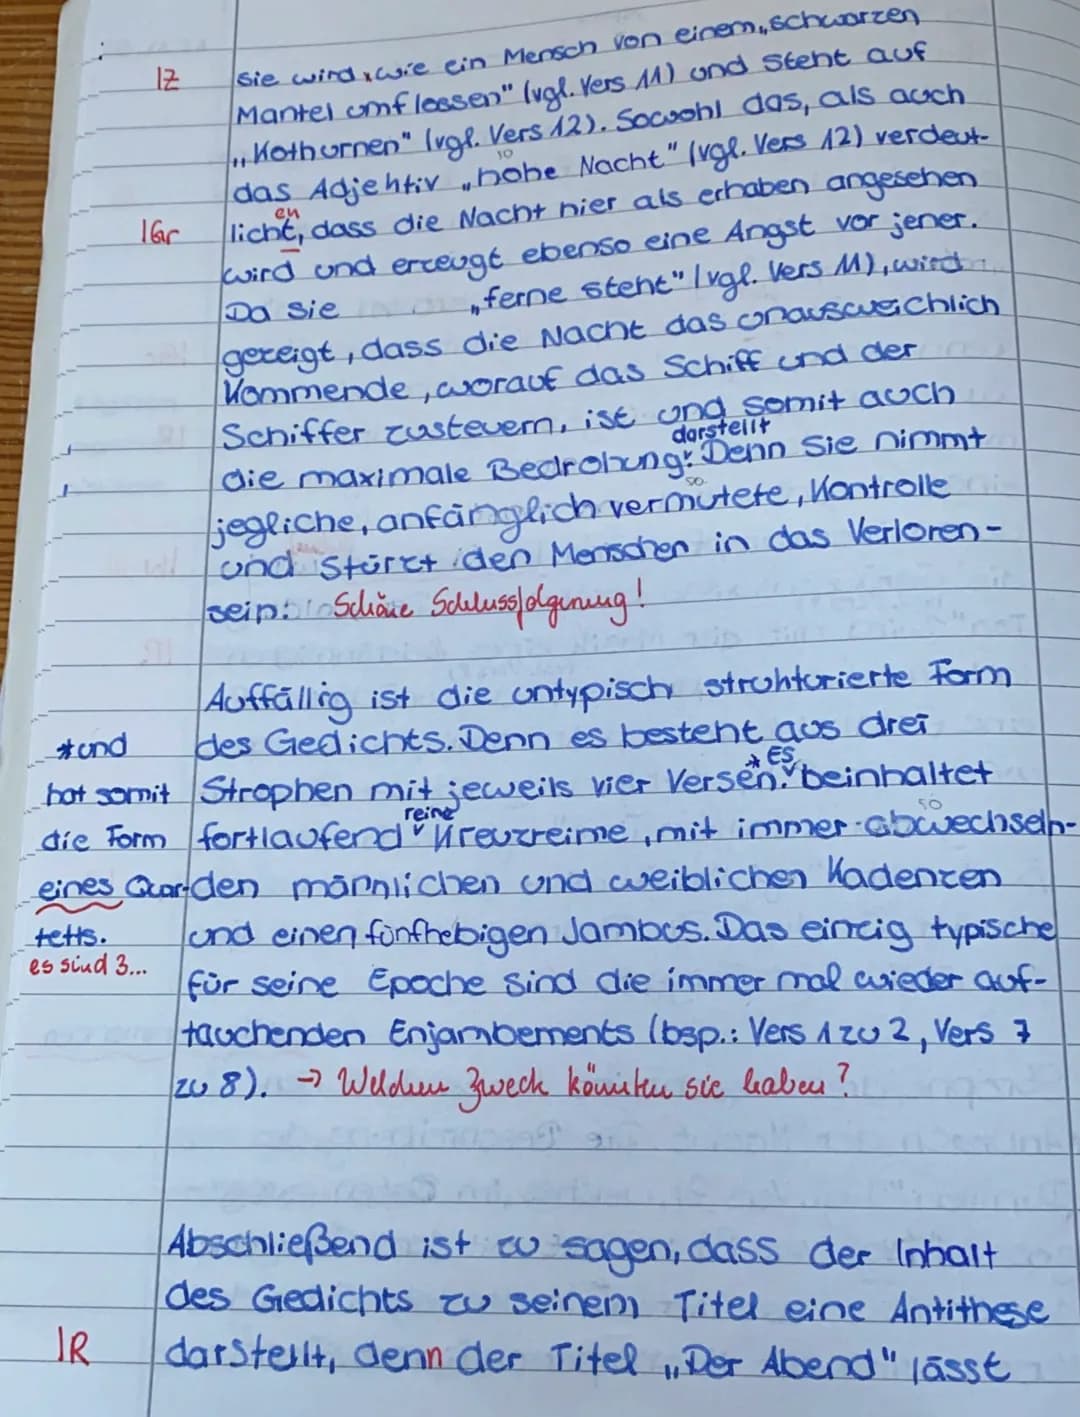 IZ sie wird, wie ein Mensch von einem „schwarzen
Mantel umflossen" (vgl. Vers 11) und steht auf
„Kothurnen" (vgl. Vers 12). Sowohl das, als auch
10
das Adjektiv „hohe Nacht" (vgl. Vers 12) verdeut-
en
IGr licht, dass die Nacht hier als erhaben angesehen
wird und erzeugt ebenso eine Angst vor jener.
Da sie „ferne steht" (vgl. Vers 11), wird
gezeigt, dass die Nacht das unausweichlich
Kommende, worauf das Schiff und der
Schiffer zusteuern, ist und somit auch
darstellt
die maximale Bedrohung. Denn sie nimmt
so
jegliche, anfänglich vermutete, Kontrolle
und stürzt den Menschen in das Verloren-
sein. Schöne Schlussfolgerung!
Auffällig ist die untypisch strukturierte Form
*und des Gedichts. Denn es besteht aus drei
* Es
hat somit Strophen mit jeweils vier Versen. beinhaltet
reine
so
die Form fortlaufend Kreuzreime, mit immer abwechseln-
eines Quar- den männlichen und weiblichen Kadenzen
tetts. und einen fünfhebigen Jambus. Das einzig typische
es sind 3... für seine Epoche sind die immer mal wieder auf-
tauchenden Enjambements (bsp.: Vers 1 zu 2, Vers 7
zu 8). → Welchen Zweck könnten sie haben?
Abschließend ist zu sagen, dass der Inhalt
des Gedichts zu seinem Titel eine Antithese
IR darstellt, denn der Titel „Der Abend" lässt